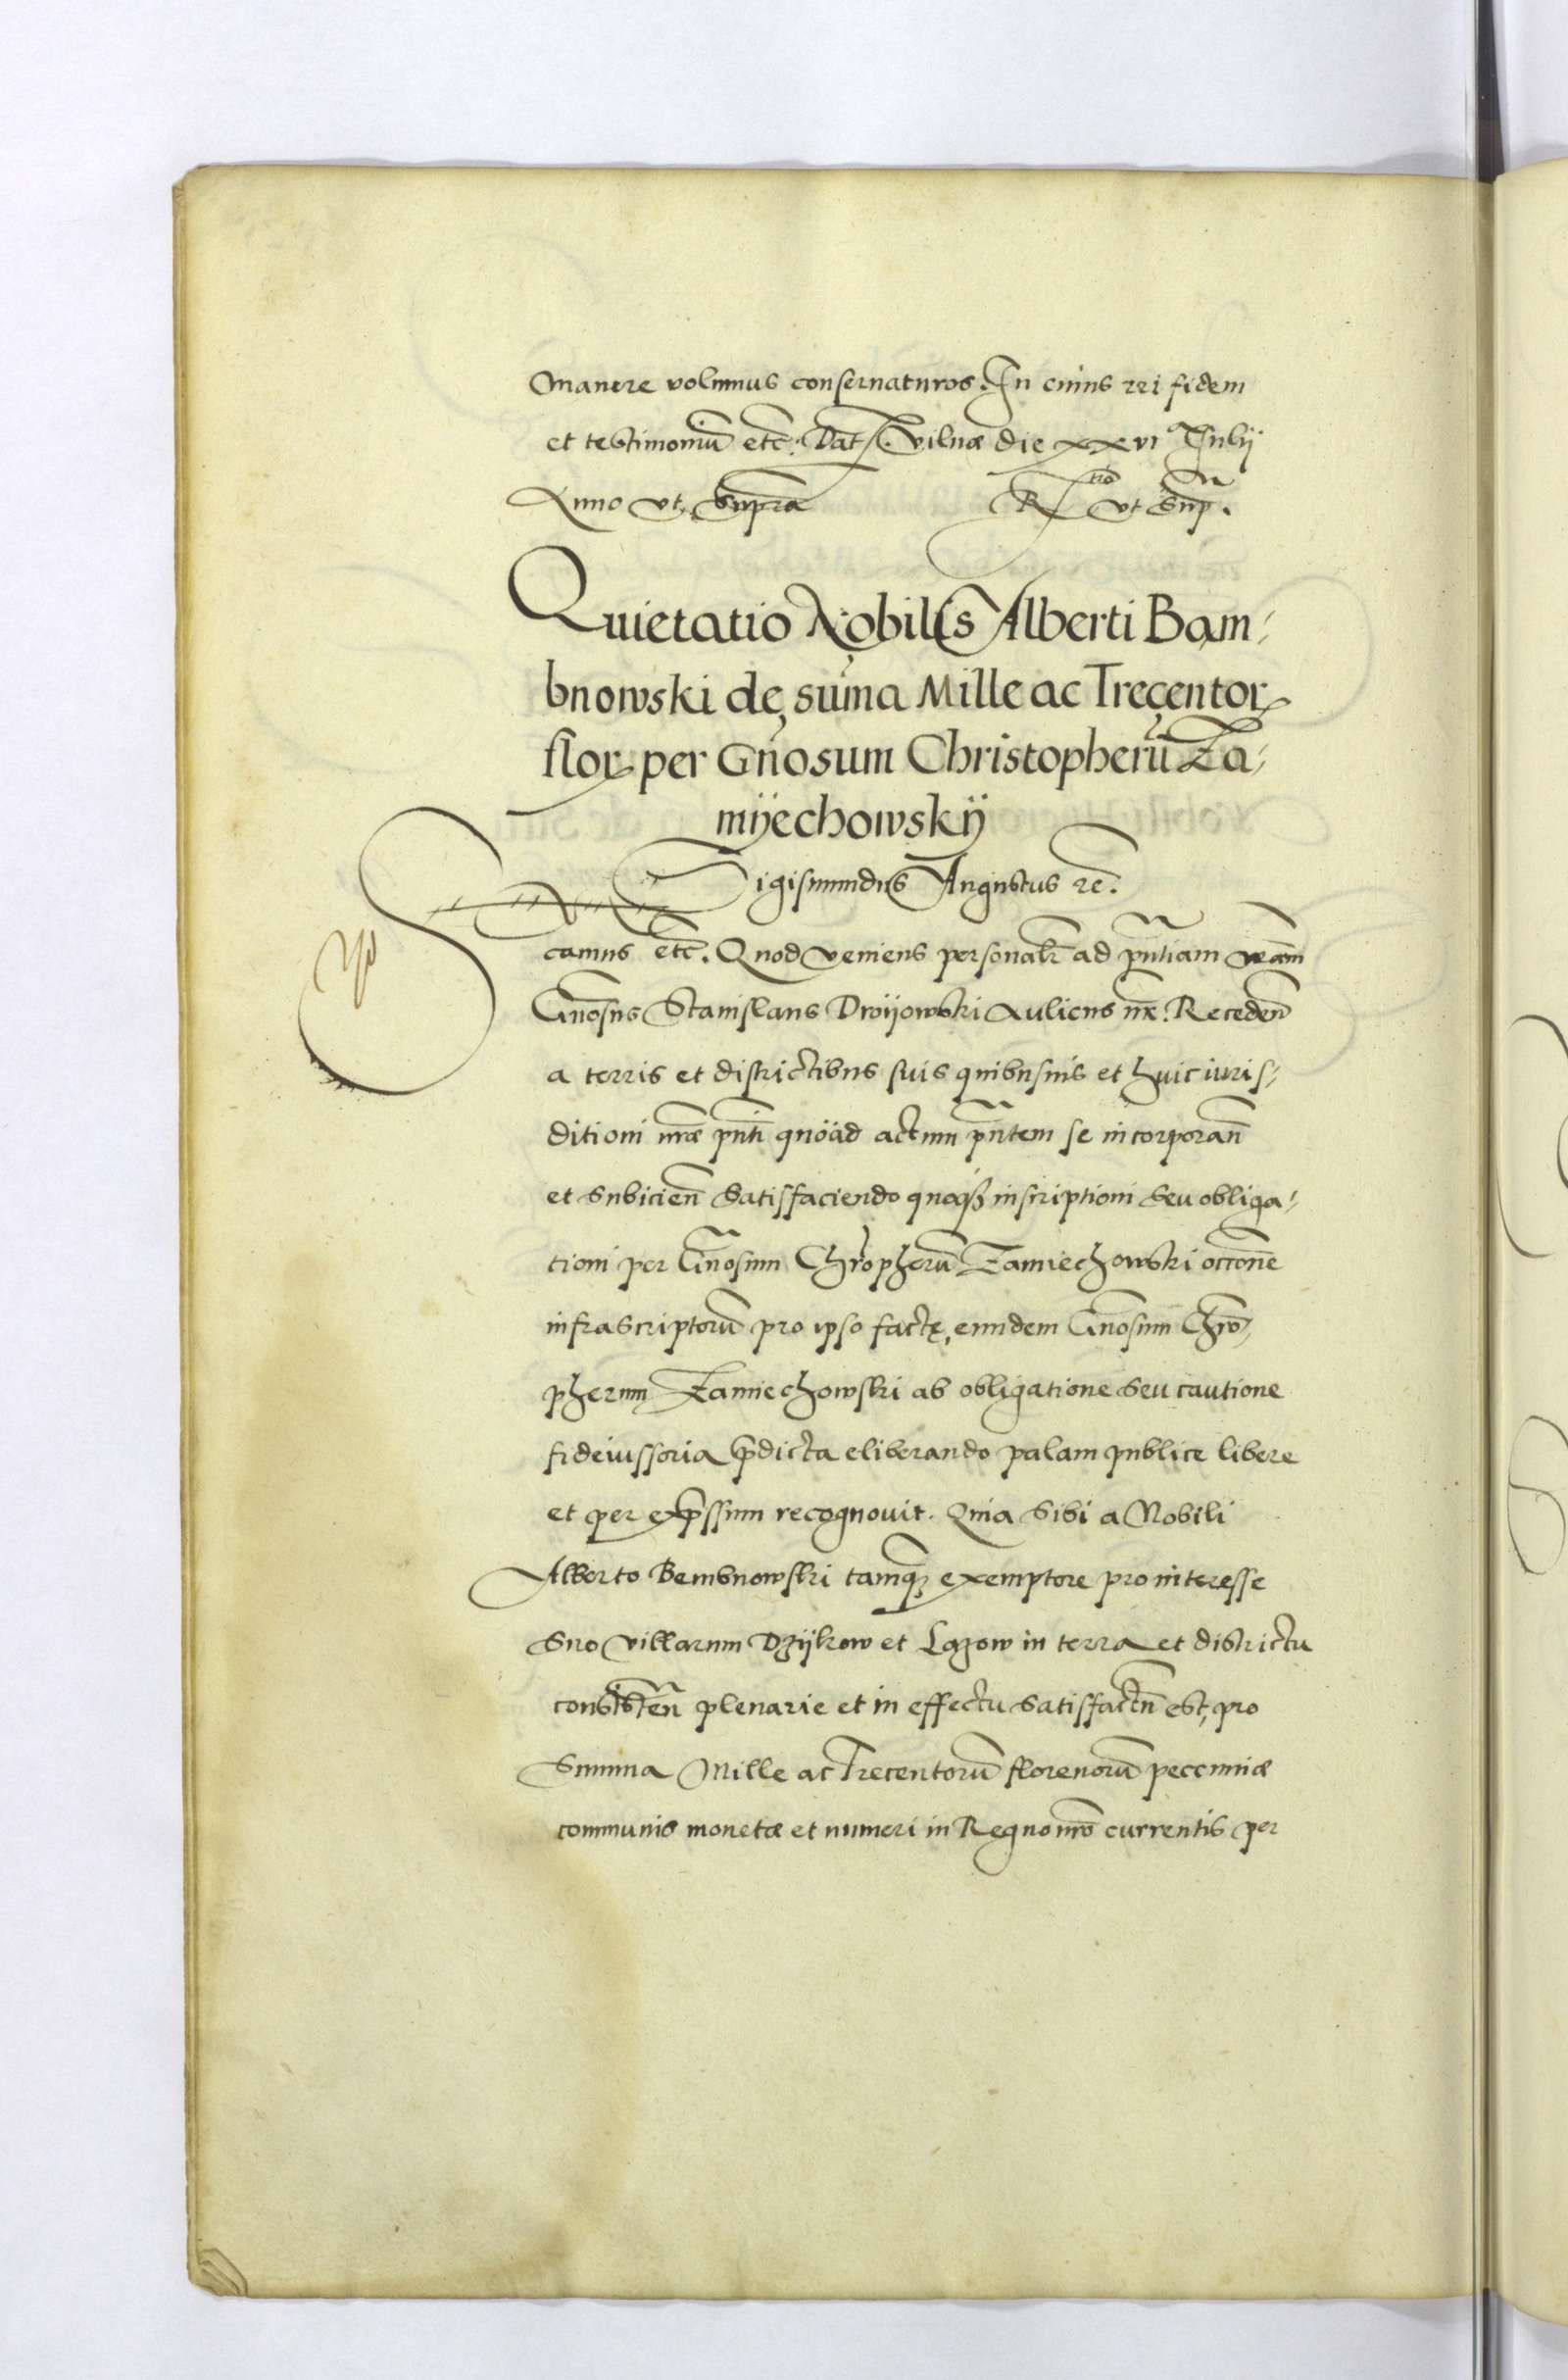 manere volumus conseruaturos. In cuius rei fidem
et testimoniũ etc̃. Dat̃. Vilnæ die xxvi Iulij
Anno vt supra R tio vt sup̃.
Quietatio Nobilis Alberti Bam⸗
bnowski de sum̃a Mille ac Trecentor
flor per Gñosum Christopherũ Za⸗
mÿechowskÿ
Sigismundus Augustus rc̃.
camus etc̃. Quod veniens personalr̃ ad pñtiam nr̃am
Gñosus Stanislaus Dwÿowski Aulicus nr̃. Recedeñ
a terris et districtibus suis quibusuis et huic iuris⸗
ditioni nr̃æ pñti quöad actum pñtem se incorporañ
et subicieñ satisfaciendo quoqȝ inscriptioni seu obliga⸗
tioni per Gñosum Chr̃opherũ Zamiechowski occ̃one
infrascriptorũ pro ipso factę, eundem Gñosum Chr̃o⸗
pherum Zamiechowski ab obligatione seu cautione
fideiussoria p̃dicta eliberando palam publice libere
et per exp̃ssum recognouit. Quia sibi a Nobili
Alberto Bembnowski tamqȝ exemptore pro interesse
suo villarum Dzÿkow et Lazow in terra et districtu
consisteñ plenarie et in effectu satisfactũ est, pro
Summa Mille ac Trecentorũ florenorũ peccuniæ
communis monetæ et numeri in Regno nr̃o currentis per